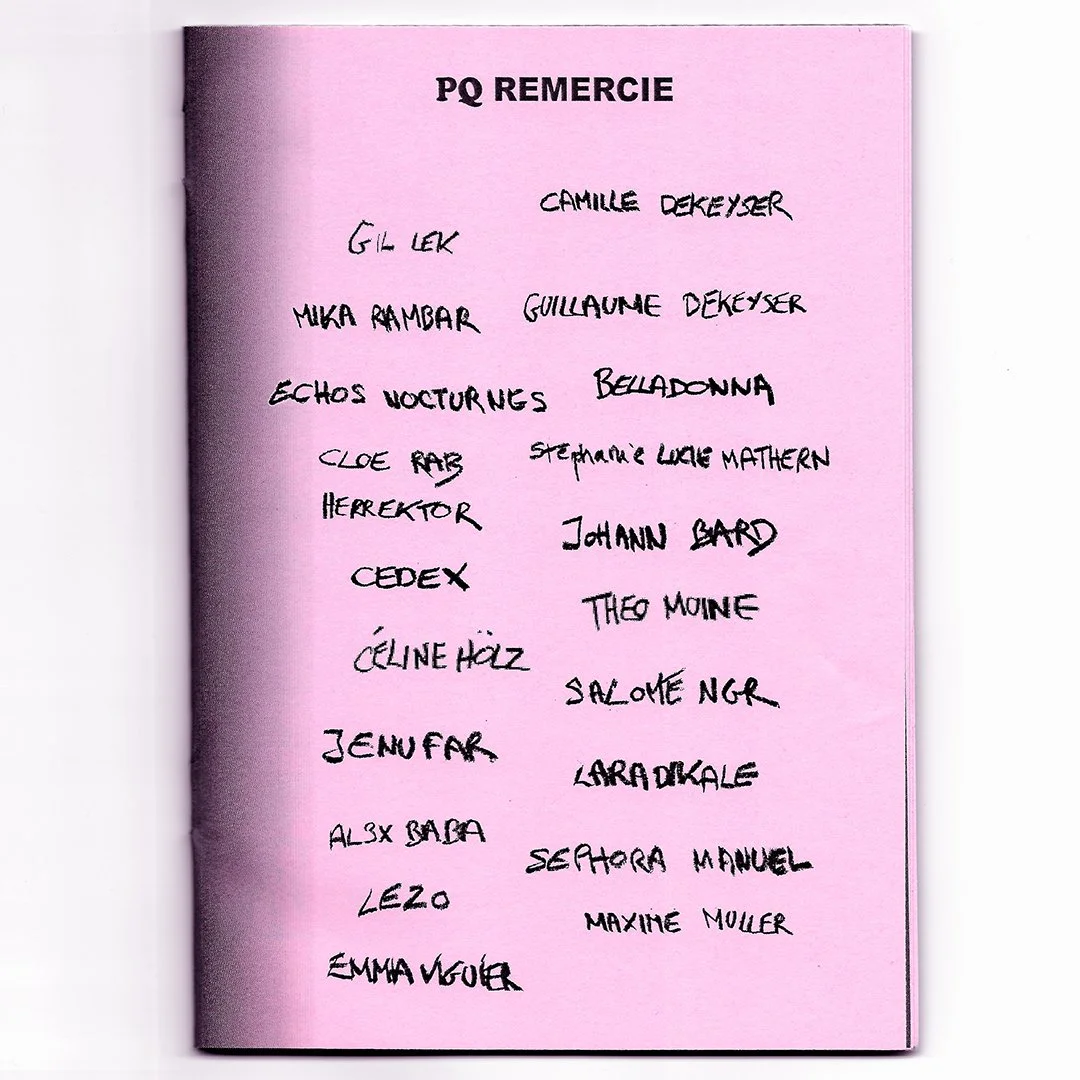 PQ REMERCIE
GIL LEK
MIKA RAMBAR
ECHOS NOCTURNES
CLOE RAB
HERREKTOR
CEDEX
CÉLINE HÖLZ
JENUFAR
AL3X BABA
LEZO
EMMA VIGUIER
CAMILLE DEKEYSER
GUILLAUME DEKEYSER
BELLADONNA
Stéphanie LUCIE MATHERN
JOHANN BARD
THEO MOINE
SALOMÉ NGR
LARADIKALE
SEPHORA MANUEL
MAXIME MULLER